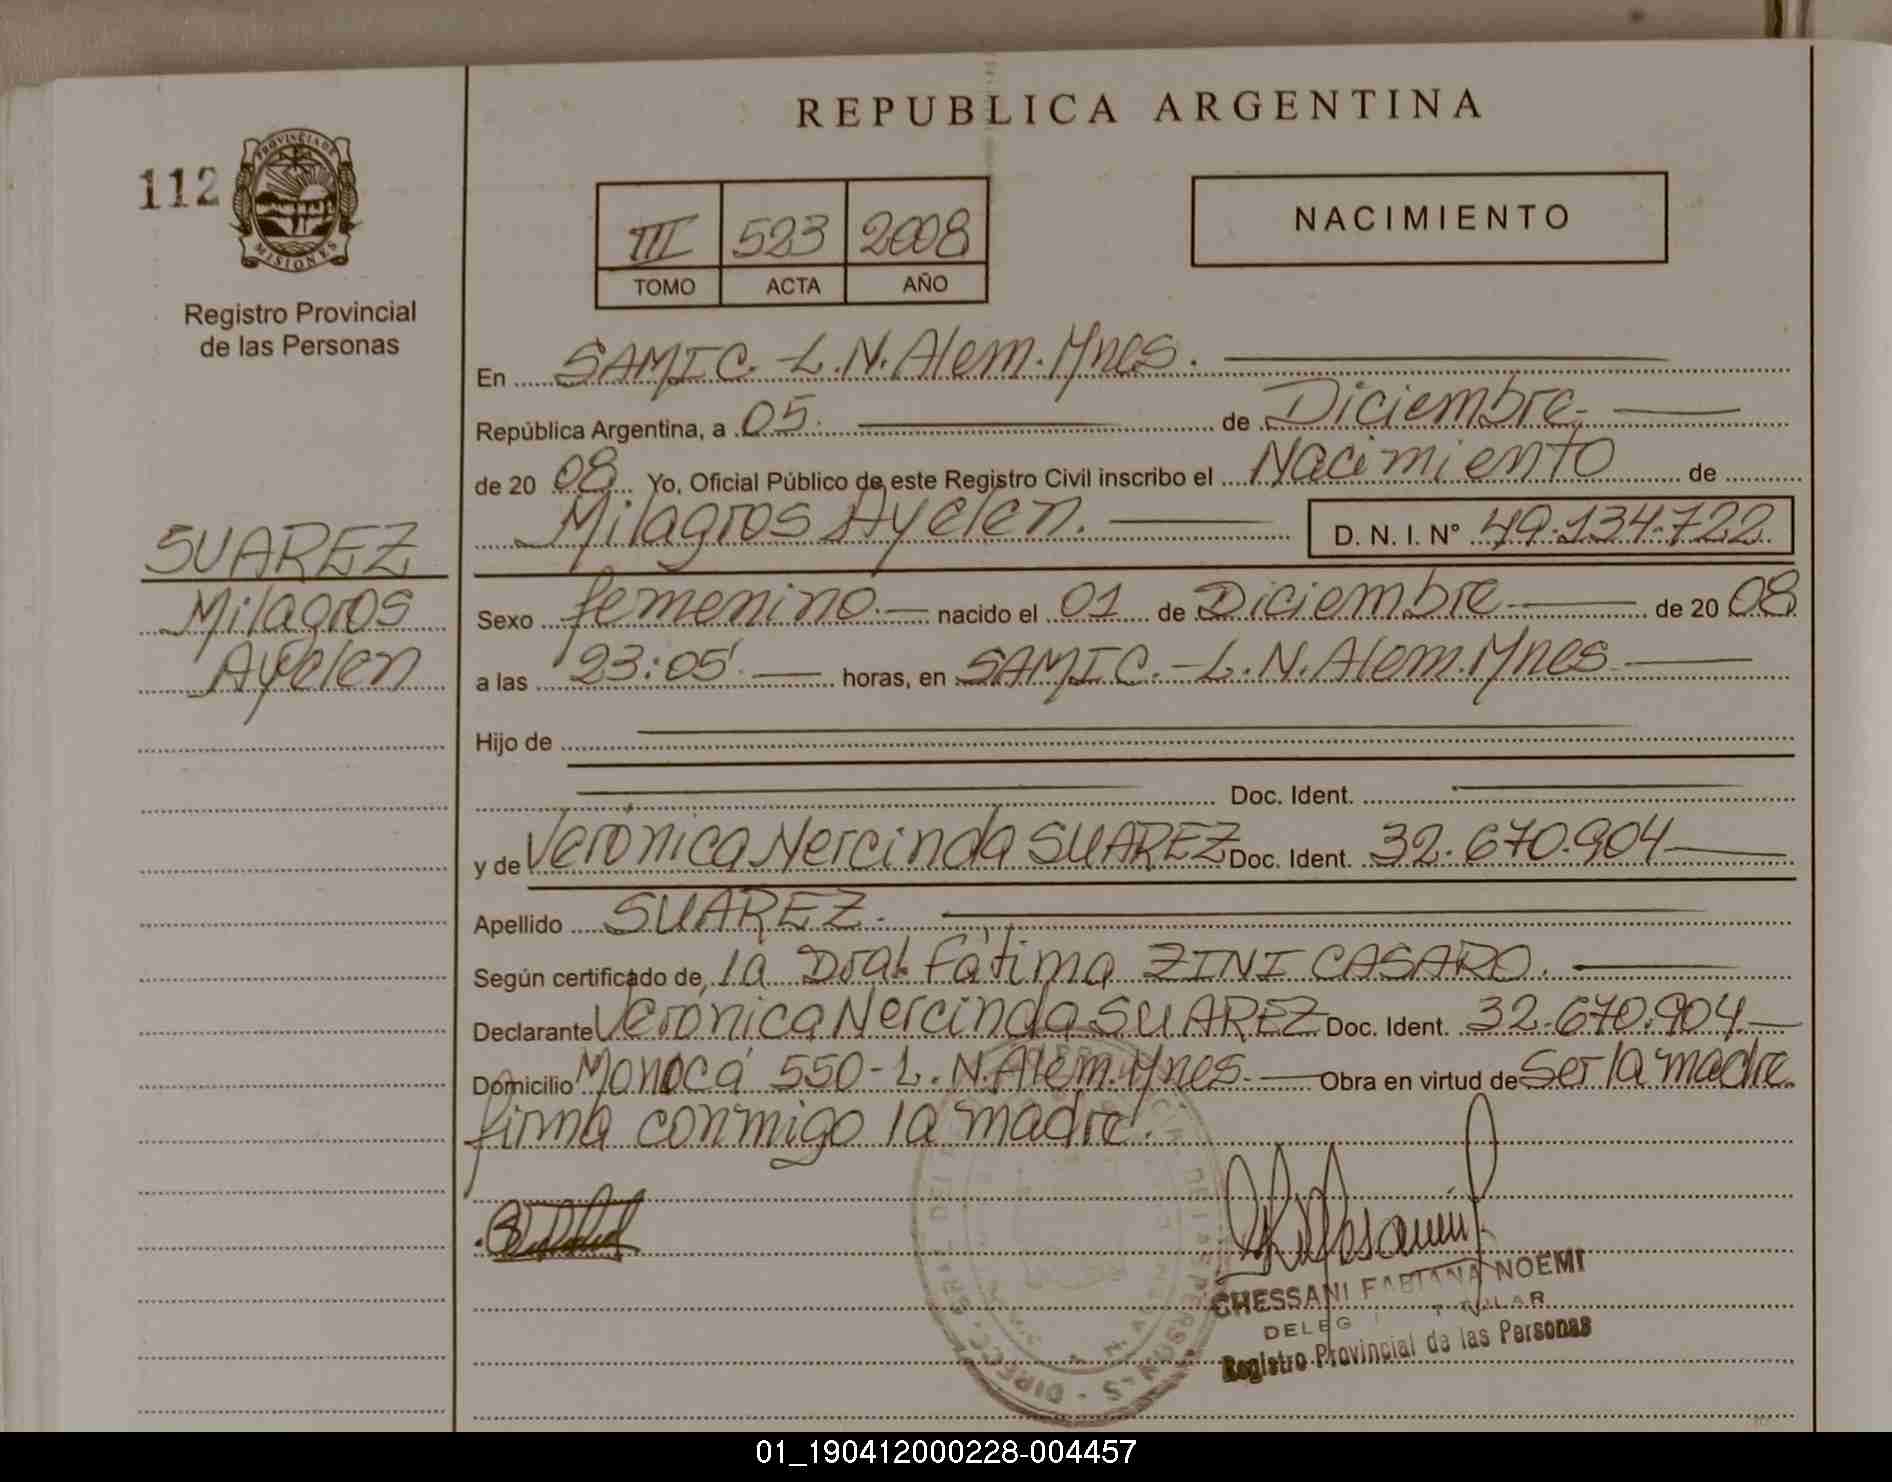 REPUBLICA ARGENTINA
112
PROVINCIA DE
MISIONES
Registro Provincial
de las Personas
III 523 2008
TOMO ACTA AÑO
NACIMIENTO
En SAMIC.-L.N.Alem.Mnes.
República Argentina, a 05. de Diciembre.
de 20 08. Yo, Oficial Público de este Registro Civil inscribo el Nacimiento de
Milagros Ayelen. D. N. I. N° 49.134.722
SUAREZ
Milagros
Ayelen
Sexo femenino. nacido el 01 de Diciembre de 20 08
a las 23:05'. horas, en SAMIC.-L.N.Alem.Mnes
Hijo de
Doc. Ident.
y de Verónica Nercinda SUAREZ Doc. Ident. 32.670.904
Apellido SUAREZ.
Según certificado de, la Fátima ZINI CASARO.
Declarante Verónica Nercinda SUAREZ Doc. Ident. 32.670.904
Domicilio 550-L.N.Alem.Mnes. Obra en virtud de Ser la madre.
firma conmigo la madre.
GHESSANI FABIANA NOEMI
Registro Provincial de las Personas
01_190412000228-004457